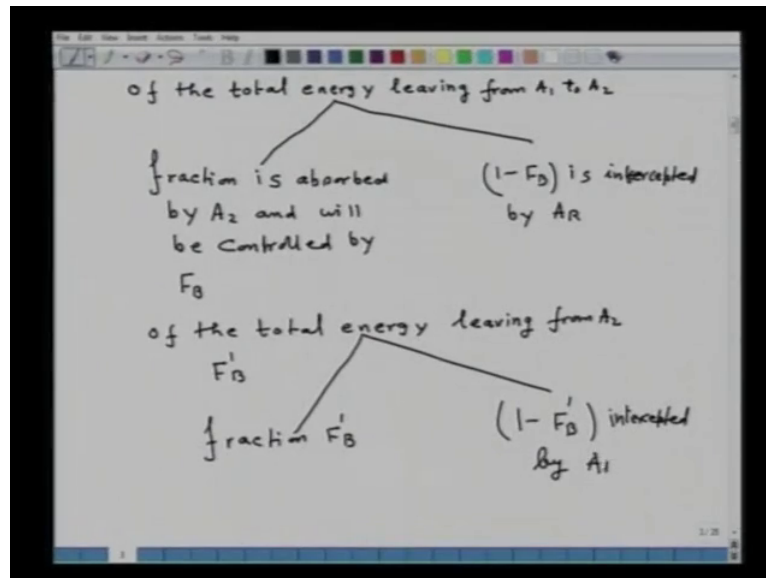 File Edit View Insert Actions Tools Help
of the total energy leaving from A1 to A2
fraction is absorbed
by A2 and will
be controlled by
FB
(1-FB) is intercepted
by AR
of the total energy leaving from A2
F'B
fraction F'B
(1- F'B) intercepted
by A1